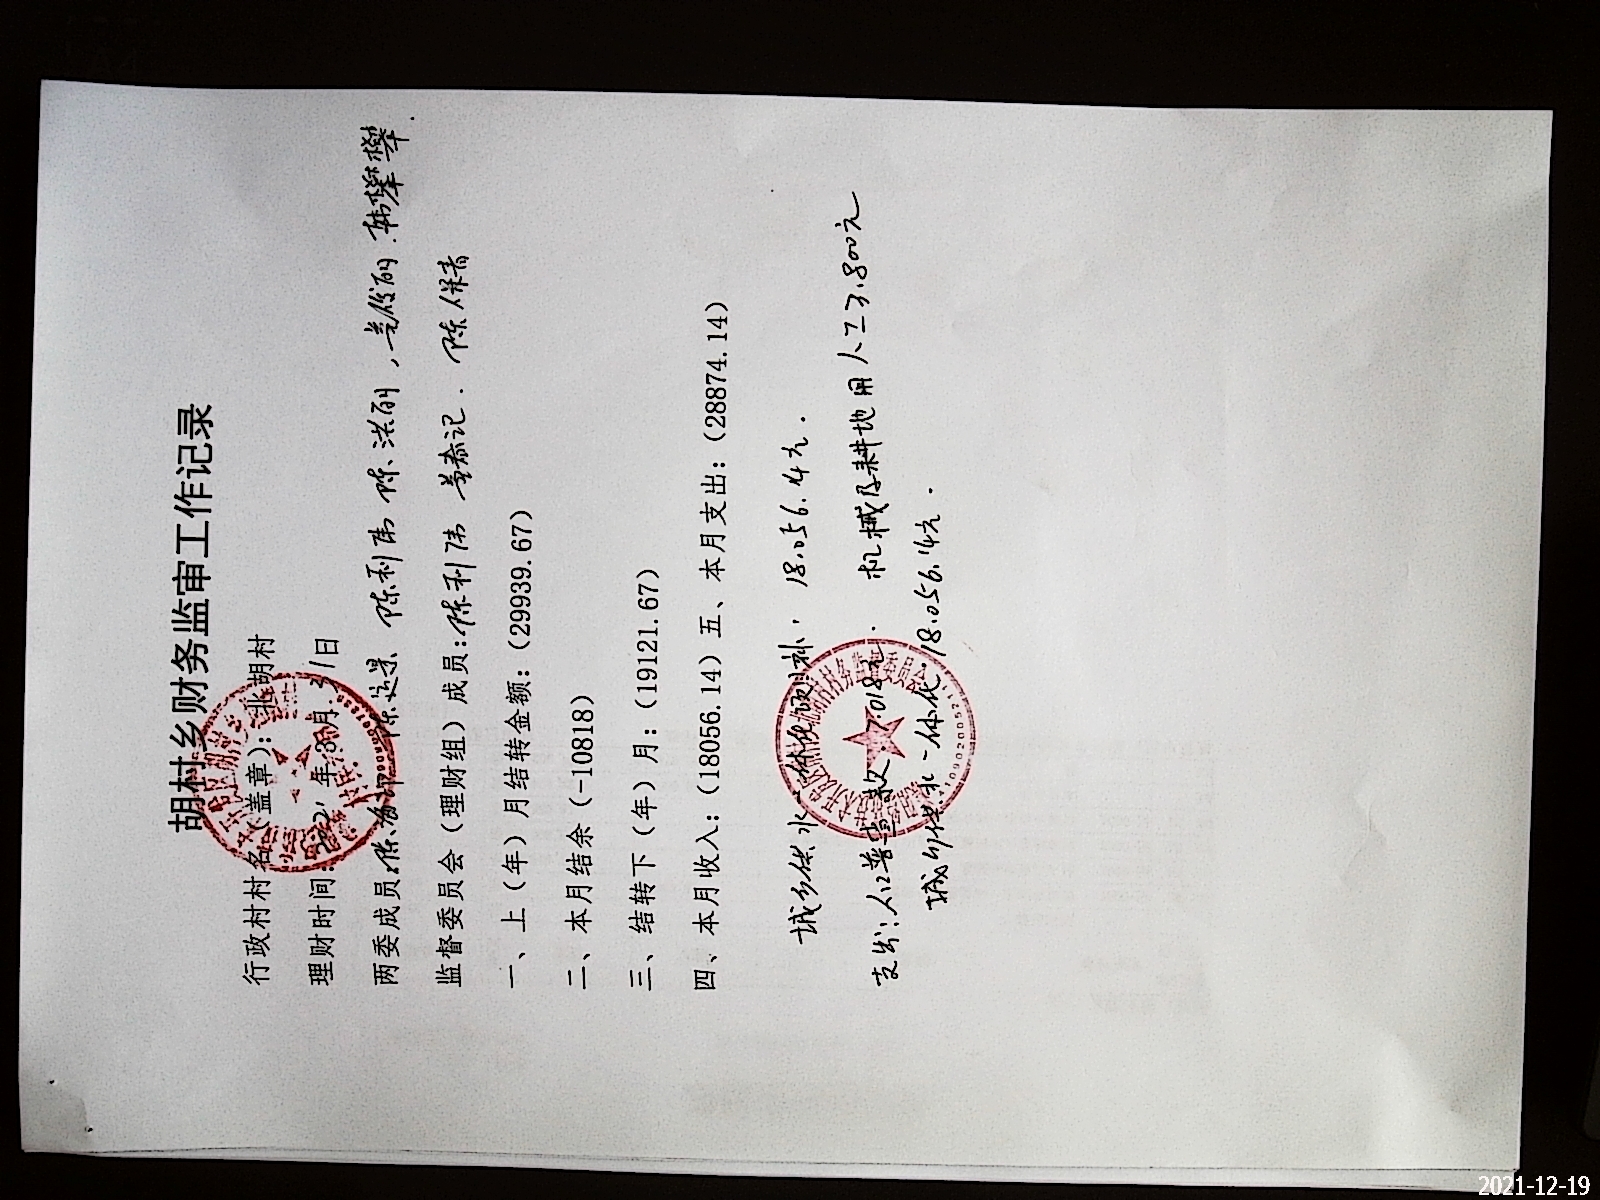 胡村乡财务监审工作记录
行政村村名(盖章):北胡村
理财时间:2021年8月31日
两委成员: 陈利伟 陈洪丽, 韩攀攀.
监督委员会(理财组)成员:陈利伟 陈保青
一、上(年)月结转金额:(29939.67)
二、本月结余(-10818)
三、结转下(年)月:(19121.67)
四、本月收入:(18056.14)五、本月支出:(28874.14)
城乡供水一体化项目补, 18.056.14元.
支出:人口普查款 7.018元. 机械及耕地用人工3.800元
城乡供水一体化.18.056.14元.
2021-12-19